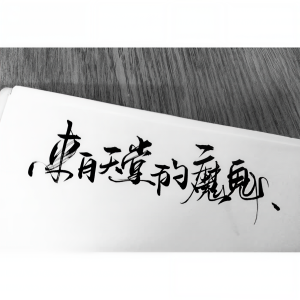 来自天堂的魔鬼、